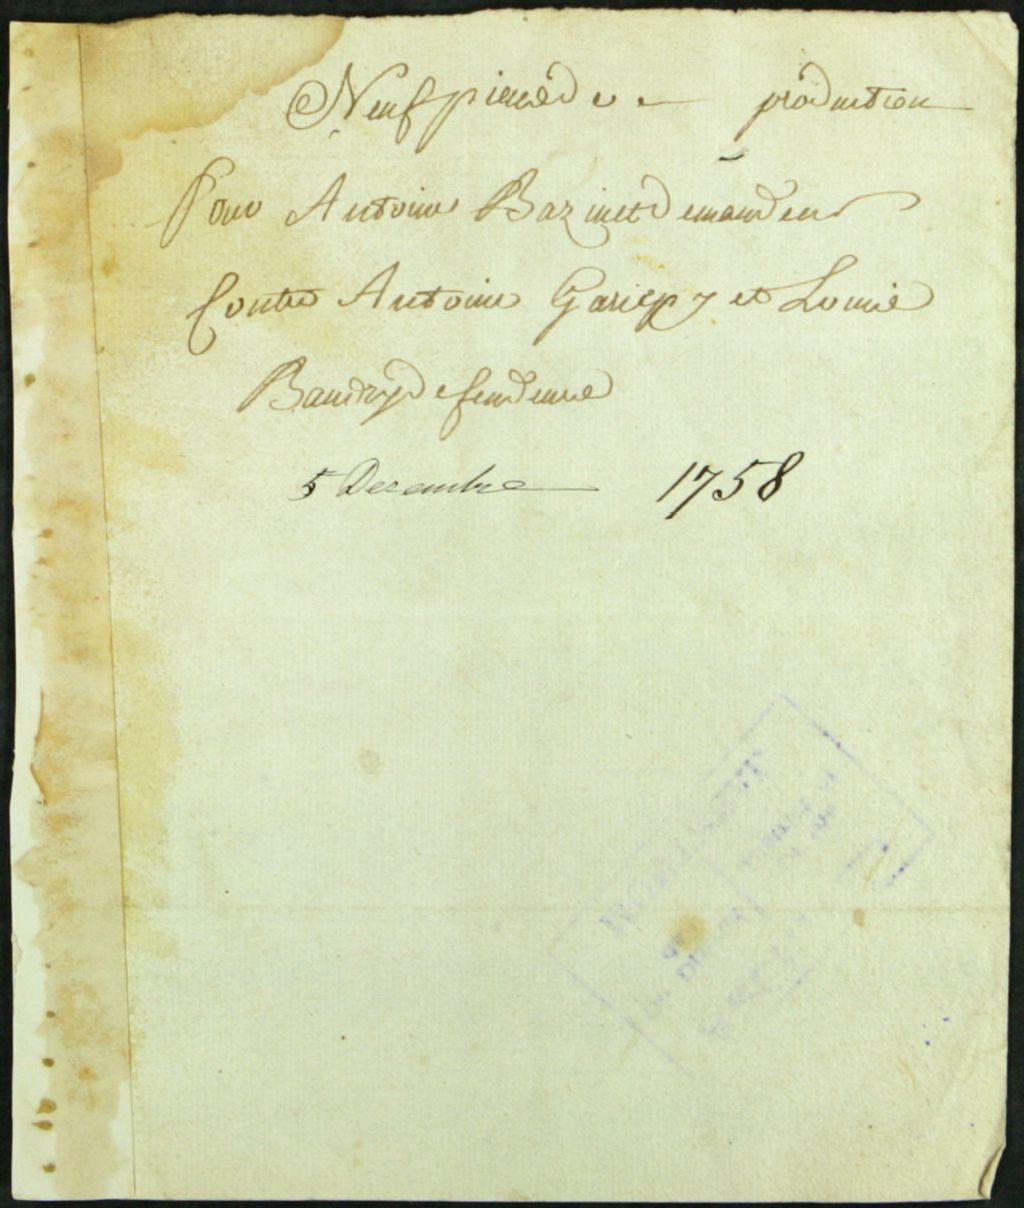 Neuf pieces de production
Pour Antoine Bazinet demandeur
Contre Antoine Gariepy et Louis
Baudry defendeurs
5 Decembre 1758